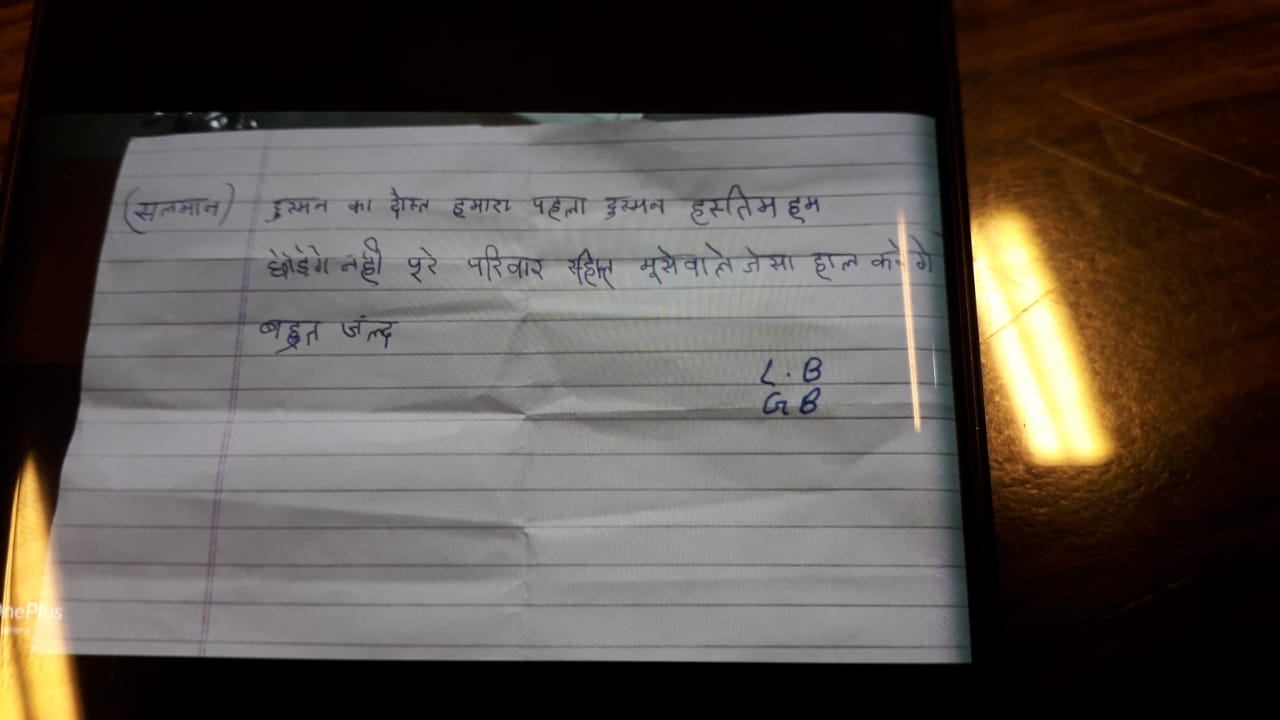 (सलमान) दुस्मन का दोस्त हमारा पहला दुस्मन हस्तिम हम
छोडेगे नही पूरे परिवार सहित मूसेवाले जेसा हाल करेगे
बहुत जल्द
L.B
G B
nePlus